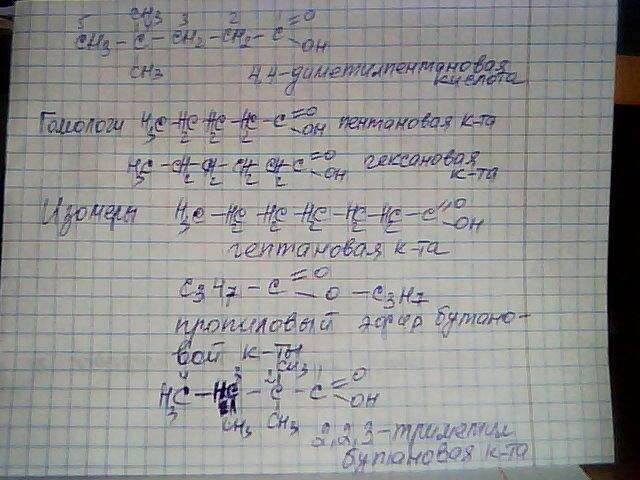 5 CH3 3 2 1
CH3 – C – CH2 – CH2 – C =O
OH
CH3 4,4-диметилпентановая
кислота
Гомологи H3C – H2C – H2C – H2C – C =O
OH пентановая к-та
H3C – CH2 – CH2 – CH2 – CH2 – C =O
OH гексановая
к-та
Изомеры H3C – H2C – H2C – H2C – H2C – H2C – C =O
OH
гептановая к-та
C3H7 – C =O
– O – C3H7
пропиловый эфир бутано-
вой к-ты
4 3 2 CH3 1
H3C – HC – C – C =O
OH
CH3 CH3
2,2,3-триметил
бутановая к-та